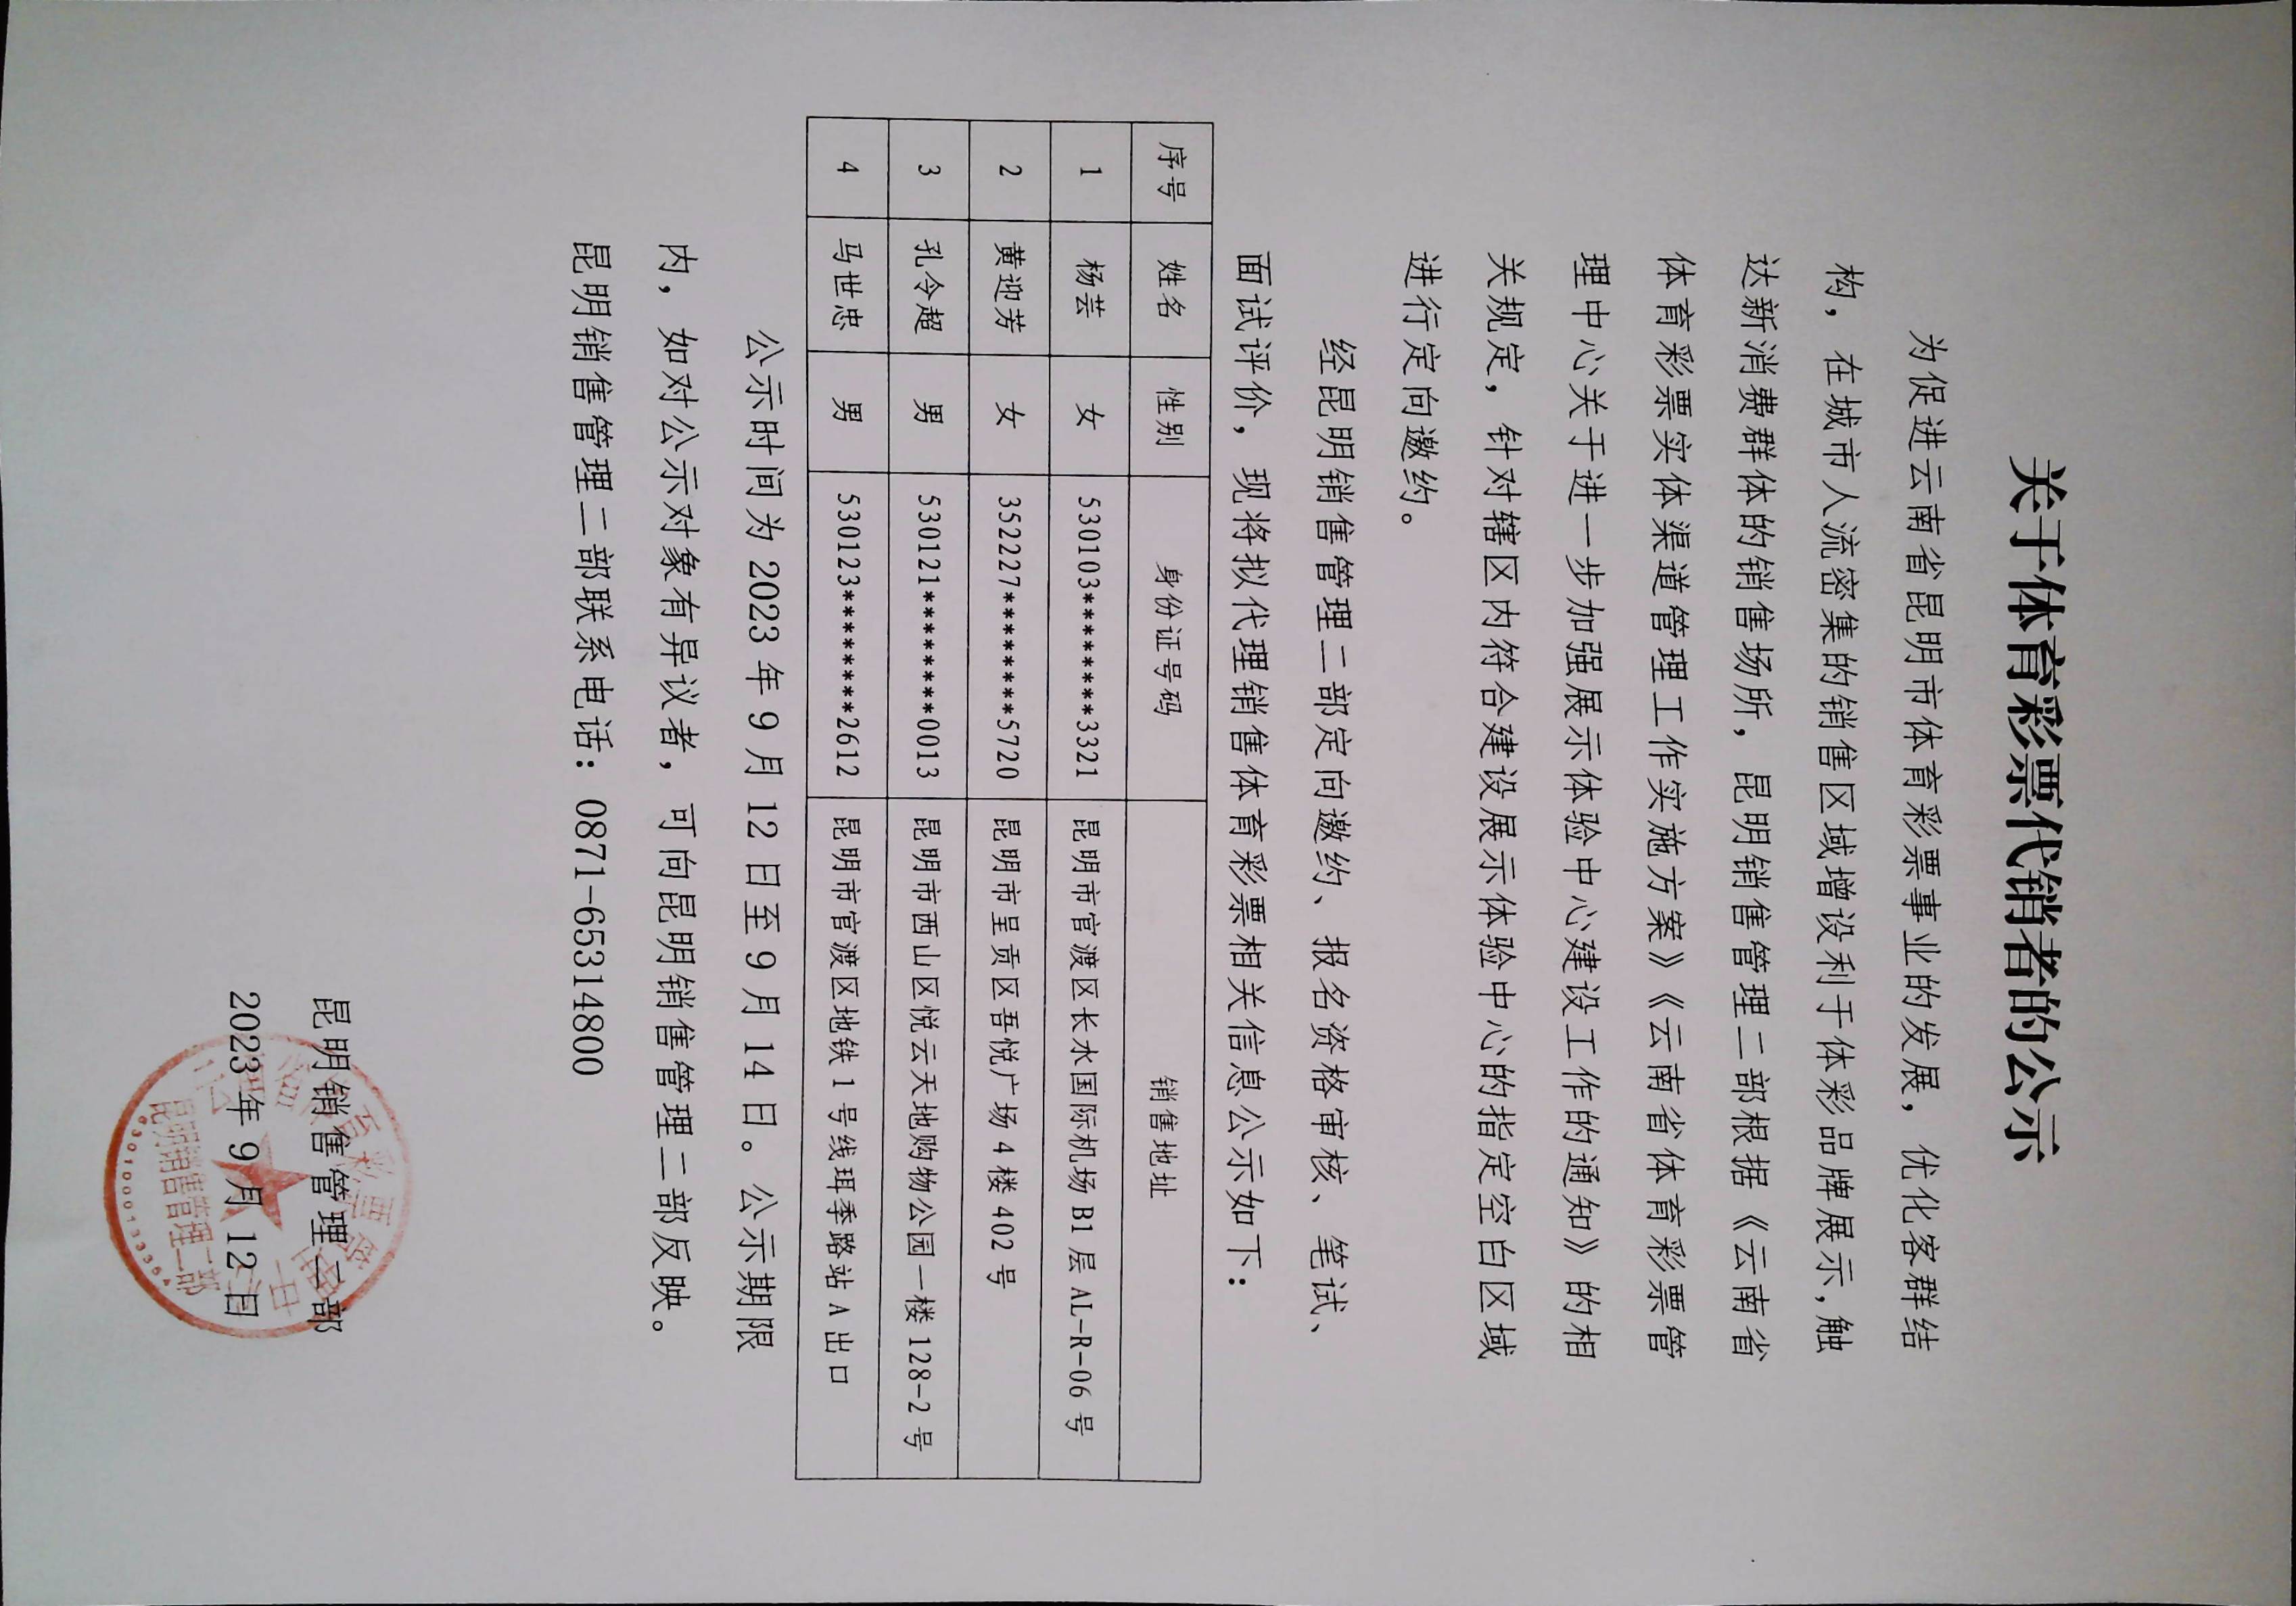 关于体育彩票代销者的公示
为促进云南省昆明市体育彩票事业的发展，优化客群结
构，在城市人流密集的销售区域增设利于体彩品牌展示,触
达新消费群体的销售场所，昆明销售管理二部根据《云南省
体育彩票实体渠道管理工作实施方案》《云南省体育彩票管
理中心关于进一步加强展示体验中心建设工作的通知》的相
关规定，针对辖区内符合建设展示体验中心的指定空白区域
进行定向邀约。
经昆明销售管理二部定向邀约、报名资格审核、笔试、
面试评价，现将拟代理销售体育彩票相关信息公示如下：
序号 姓名 性别 身份证号码 销售地址
1 杨芸 女 530103********3321 昆明市官渡区长水国际机场 B1 层 AL-R-06 号
2 黄迎芳 女 352227********5720 昆明市呈贡区吾悦广场 4 楼 402 号
3 孔令超 男 530121********0013 昆明市西山区悦云天地购物公园一楼 128-2 号
4 马世忠 男 530123********2612 昆明市官渡区地铁 1 号线珥季路站 A 出口
公示时间为 2023 年 9 月 12 日至 9 月 14 日。公示期限
内，如对公示对象有异议者，可向昆明销售管理二部反映。
昆明销售管理二部联系电话：0871-65314800
昆明销售管理二部
2023年 9月 12日
昆明销售管理二部